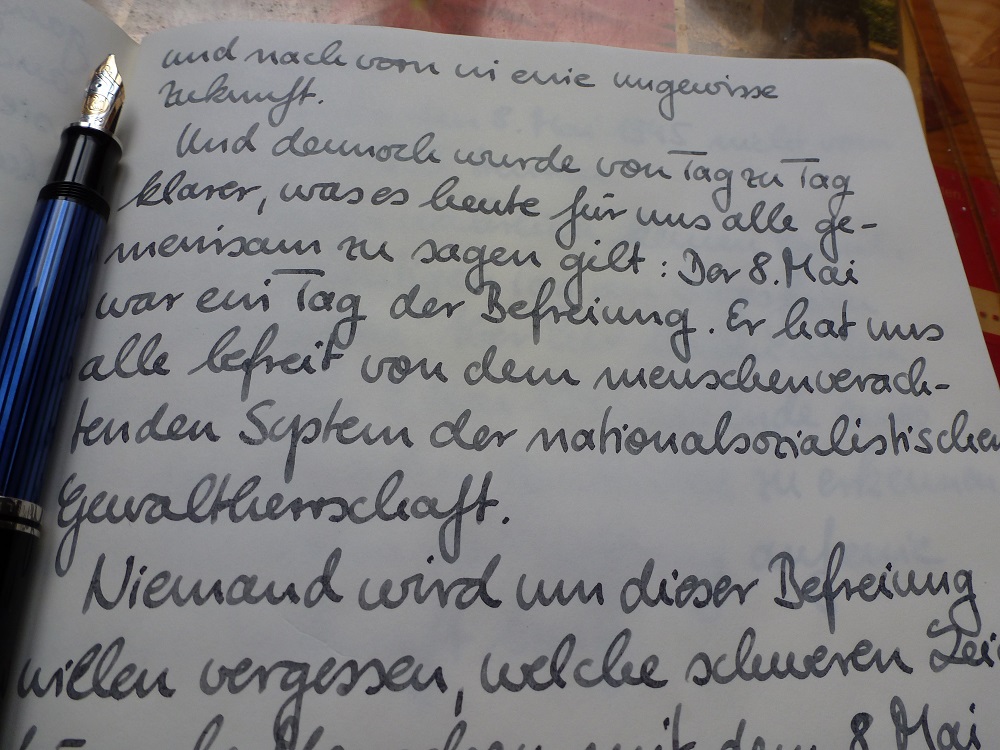 und nach vorn in eine ungewisse
Zukunft.
Und dennoch wurde von Tag zu Tag
klarer, was es heute für uns alle ge-
meinsam zu sagen gilt: Der 8. Mai
war ein Tag der Befreiung. Er hat uns
alle befreit von dem menschenverach-
tenden System der nationalsozialistischen
Gewaltherrschaft.
Niemand wird um dieser Befreiung
willen vergessen, welche schweren Lei
Menschen mit dem 8. Mai